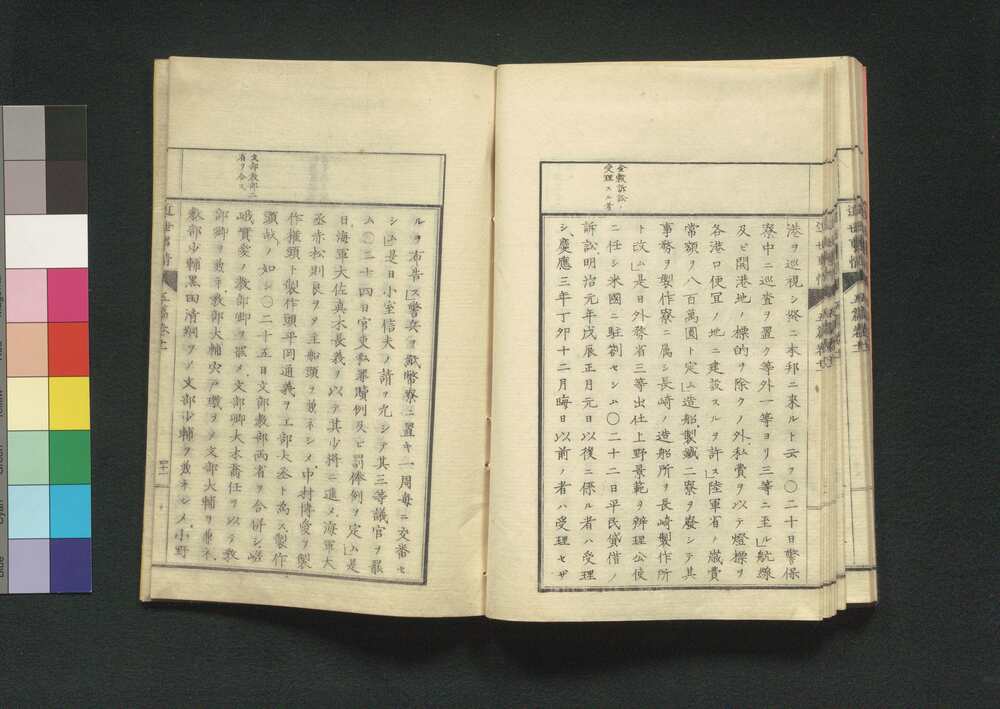 金穀訴訟ノ
受理スル等
港ヲ巡視シ終ニ本邦ニ來ルト云フ〇二十日警保
寮中ニ巡査ヲ置ク等外一等ヨリ三等ニ至ル」航線
及ヒ開港地ノ標的ヲ除クノ外私費ヲ以テ燈標ヲ
各港口便宜ノ地ニ建設スルヲ許ス」陸軍省ノ歳費
常額ヲ八百萬圓ト定ム」造船製鐵二寮ヲ廢シテ其
事務ヲ製作寮ニ属シ長崎ノ造船所ヲ長崎製作所
ト改ム」是日外務省三等出仕上野景範ヲ辨理公使
ニ任シ米國ニ駐劄セシム〇二十二日平民貸借ノ
訴訟明治元年戊辰正月元日以後ニ係ル者ハ受理
シ慶應三年丁卯十二月晦日以前ノ者ハ受理セザ
文部教部二
省ヲ合ス
ルヲ布告ス」警兵ヲ紙幣寮ニ置キ一周毎ニ交番セ
シム」是日小室信夫ノ請ヲ允シテ其三等議官ヲ罷
ム〇二十四日官吏私罪贖例及ヒ罰俸例ヲ定ム」是
日海軍大佐真木長義ヲ以テ其少將ニ進メ海軍大
丞赤松則良ヲ〆主船頭ヲ兼ネシメ中村博愛ヲ製
作權頭ト製作頭平岡通義ヲ工部大丞ト為ス製作
頭故ノ如シ〇二十五日文部教部両省ヲ合併シ嵯
峨實愛ノ教部卿ヲ罷メ文部卿大木喬任ヲ以テ教
部卿ヲ教部大輔宍戸璣ヲ〆文部大輔ヲ兼ネ
教部少輔黒田清綱ヲ〆文部少輔ヲ兼ネシメ小野
近世事情
五篇卷十一
四十一